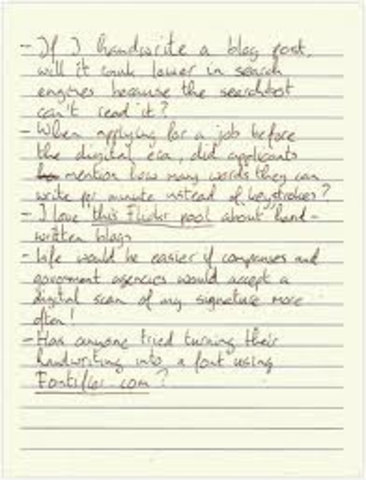 - If I handwrite a blog post,
will it rank lower in search
engines because the searchbot
can't read it?
- When applying for a job before
the digital era, did applicants
mention how many words they can
write per minute instead of keystrokes?
- I love this Flickr pool about "hand-
written blogs
- Life would be easier if companies and
government agencies would accept a
digital scan of my signature more
often!
- Has anyone tried turning their
handwriting into a font using
Fontifier.com?